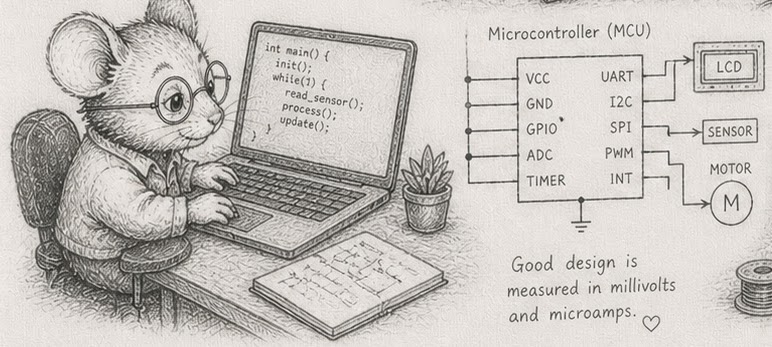 int main() {
init();
while(1) {
read_sensor();
process();
update();
}
}
Microcontroller (MCU)
VCC UART
GND I2C
GPIO SPI
ADC PWM
TIMER INT
LCD
SENSOR
MOTOR
M
Good design is
measured in millivolts
and microamps. ♡